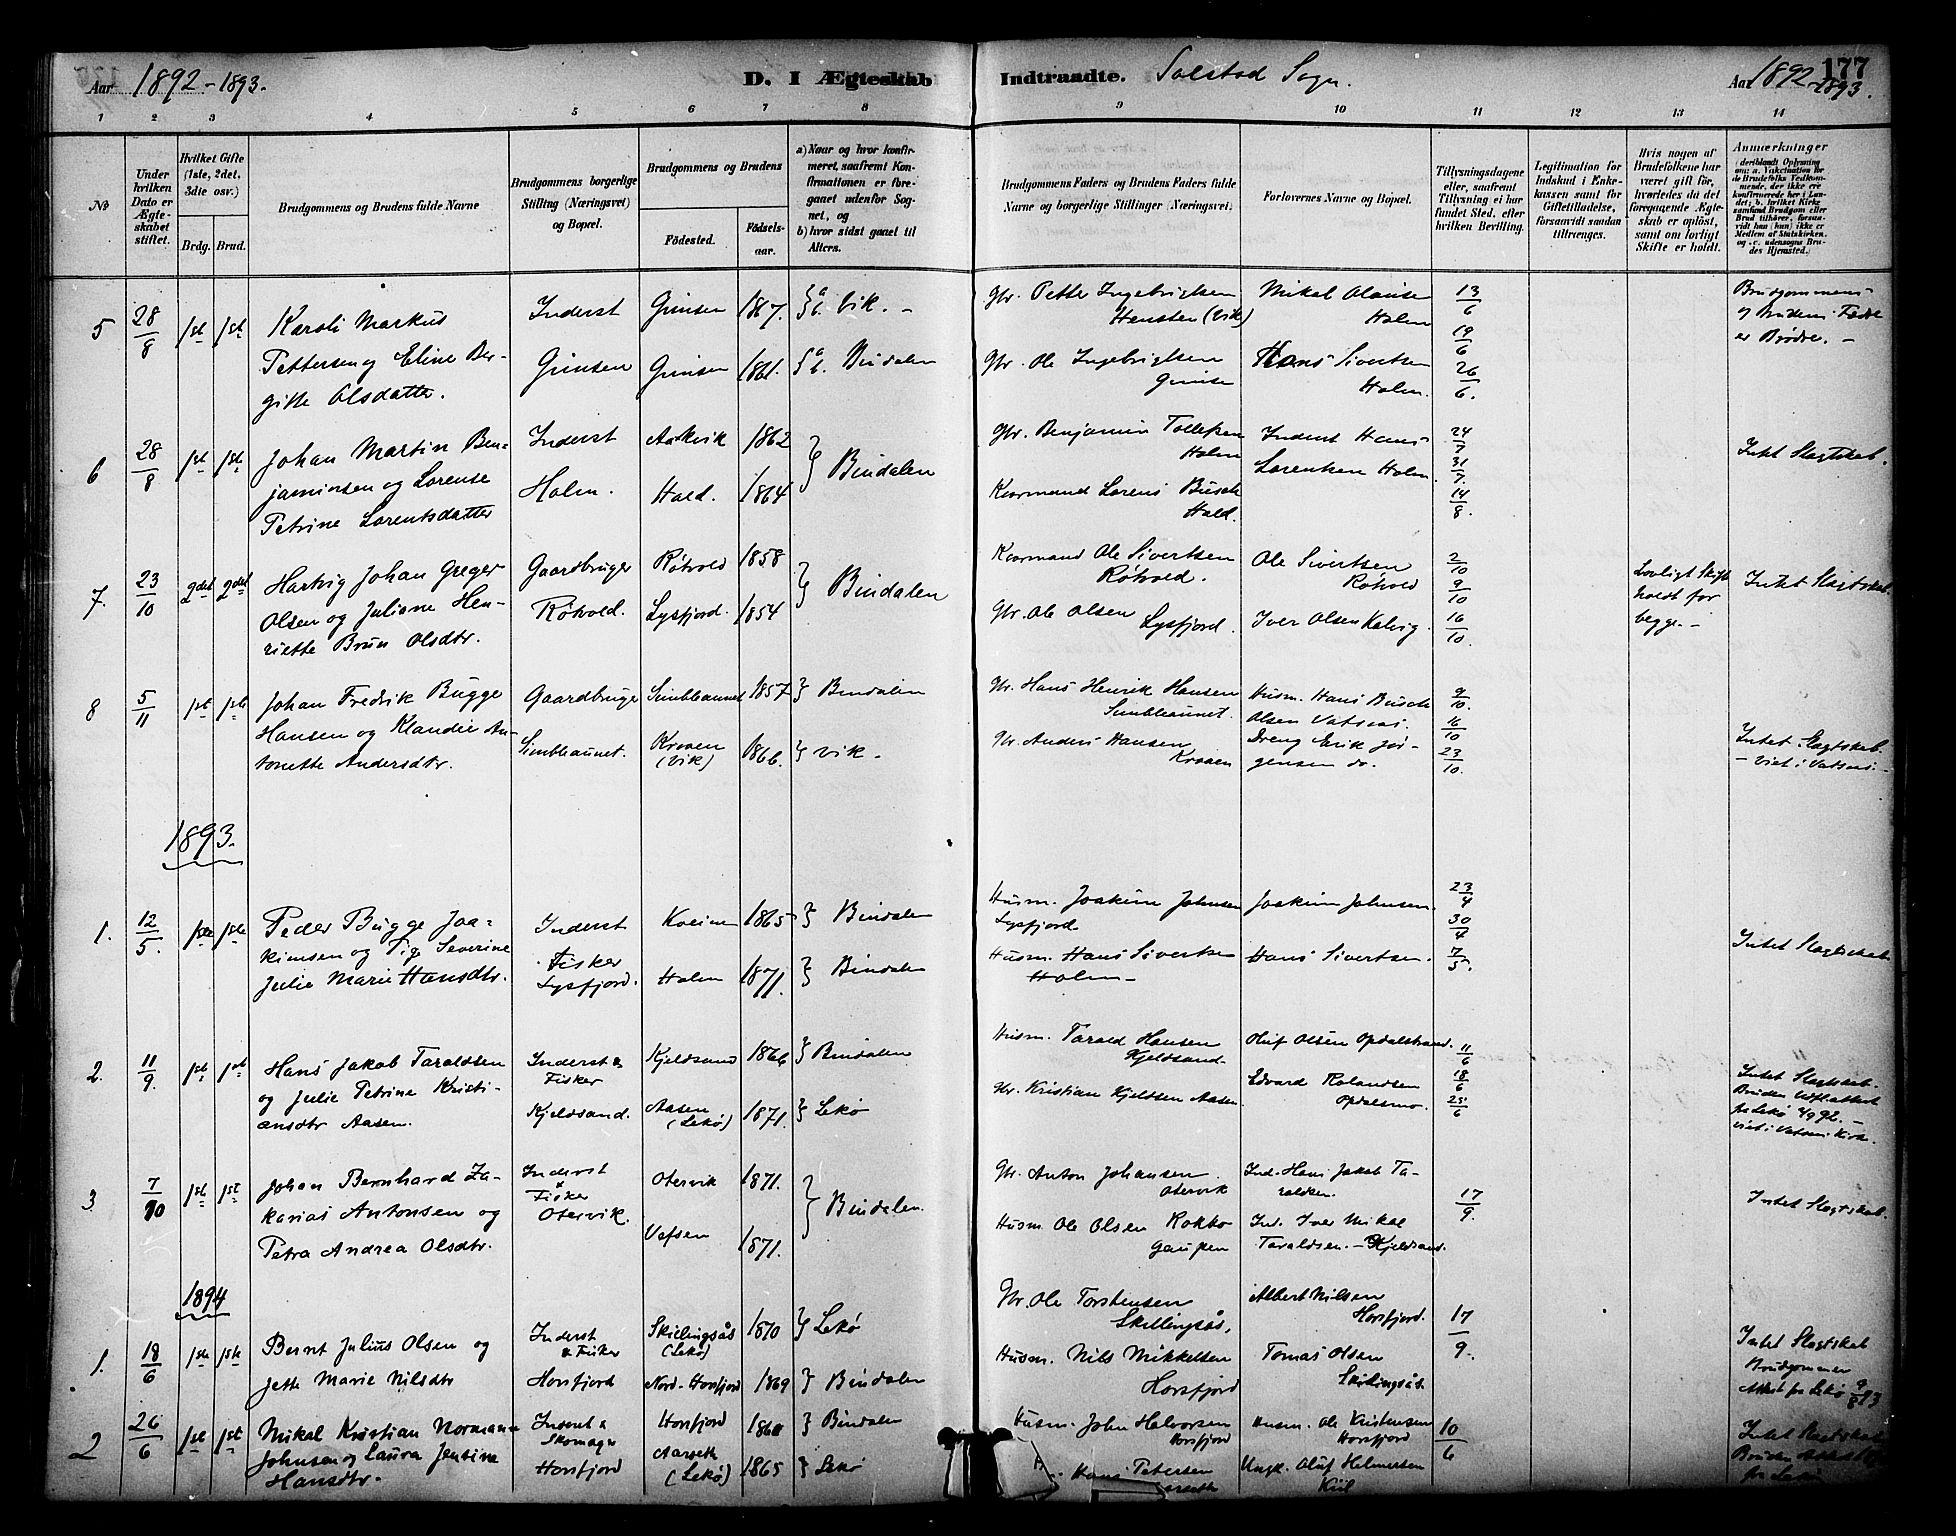 Aar 1892-1893.
D. I Ægteskab Indtraadte. Solstad Sogn.
Aar 1892-1893. 177
1 2 3 4 5 6 7 8 9 10 11 12 13 14
№
Under hvilken Dato er Ægteskabet stiftet.
Hvilket Gifte (1ste, 2det, 3die osv.)
Brdg. Brud.
Brudgommens og Brudens fulde Navne
Brudgommens borgerlige Stilling (Næringsvei) og Bopæl.
Brudgommens og Brudens
Födested.
Födselsaar.
a) Naar og hvor konfirmeret, saafremt Konfirmationen er foregaaet udenfor Sognet, og
b) hvor sidst gaaet til Alters.
Brudgommens Faders og Brudens Faders fulde Navne og borgerlige Stillinger (Næringsvei.)
Forlovernes Navne og Bopæl.
Tillysningsdagene eller, saafremt Tillysning ei har fundet Sted, efter hvilken Bevilling.
Legitimation for Indskud i Enkekassen samt for Giftetilladelse, forsaavidt saadan tiltrænges.
Hvis nogen af Brudefolkene har været gift för, hvorledes da det foregaaende Ægteskab er oplöst, samt om lovligt Skifte er holdt.
Anmerkninger
5 28/8 1ste 1ste
Karoli Markus
Pettersen og Eline Ber-
gitte Olsdatter.
Inderst
Grimsen
Grimsen 1867. a b. Vik. -
Grimsen 1861. a b. Bindalen
Gbr. Petter Ingebrigtsen
Hensten (Vik)
Gbr. Ole Ingebrigtsen
Grimsen
Mikal Olausen
Holm
Hans Sivertsen
Holm.
13/6
19/6
26/6.
Brudgommens
og Brudens Fædre
er Brødre. -
6 28/8 1ste 1ste
Johan Martin Ben-
jaminsen og Lorense
Petrine Lorentsdatter
Inderst
Holm.
Aakvik 1862
Hald. 1864
Bindalen
Gbr. Benjamin Tollefsen
Holm
Kvormand Lorens Busch
Hald.
Inderst Hans
Lorentsen Holm.
24/7
31/7.
14/8.
Intet Slagtskab.
7. 23/10 2det 2det
Hartvig Johan Greger
Olsen og Juliane Hen-
riette Brun Olsdtr.
Gaardbruger
Røtvold.
Røtvold 1858
Lysfjord. 1854
Bindalen
Kvormand Ole Sivertsen
Røtvold.
Gbr. Ole Olsen
Lysfjord.
Ole Sivertsen
Røtvold
Iver Olsen Kalvig.
2/10
9/10
16/10.
Lovligt Skifte
holdt for
begge. -
Intet Slagtskab.
8 5/11 1ste 1ste
Johan Fredrik Bugge
Hansen og Klandie An-
tonette Andersdtr.
Gaardbruger
Simbleaunet.
Simbleaunet 1857 Bindalen
Kroaen (Vik) 1866. Vik.
Gbr. Hans Henrik Hansen
Simbleaunet.
Gbr. Anders Hansen
Kroaen
Husm. Hans Busch
Olsen Vatsaas.
Dreng Erik Jør-
gensen do.
9/10.
16/10
23/10.
Intet Slagtskab.
- viet i Vatsaas. -
1893.
1. 12/5. 1ste 1ste
Peder Bugge Joa-
kimsen og Pig. Severine
Julie Marie Hansdtr.
Inderst
Fisker
Lysfjord.
1865 Bindalen
Holm 1871. Bindalen
Husm. Joakim Johnsen
Lysfjord
Husm. Hans Sivertsen
Holm -
Joakim Johnsen.
Hans Sivertsen.
23/4
30/4
7/5.
Intet Slagtskab
2. 11/9. 1ste 1ste
Hans Jakob Taraldsen
og Julie Petrine Kristi-
ansdtr Aasen.
Inderst &
Fisker
Kjeldsand.
Kjeldsand 1866 Bindalen
Aasen (Lekø) 1871. Lekø
Husm. Tarald Hansen
Kjeldsand.
Gbr. Kristian Kjeldsen Aasen.
Oluf Olsen Opdalstrand.
Edvard Rolandsen
Opdalsmo.
11/6
18/6
25/6
Intet Slagtskab.
Bruden Udfl.attest
fra Lekø
viet i Vatsaas Kirke.
3 7/10 1ste 1ste
Johan Bernhard Za-
karias Antonsen og
Petra Andrea Olsdtr.
Inderst
&
Fisker
Otervik.
Otervik 1871.
Vefsen 1871.
Bindalen.
Gbr. Anton Johansen
Otervik
Husm Ole Olsen Rokko
Gaupen
Ind. Hans Jakob Ta-
raldsen.
Ind. Iver Mikal
Taraldsen. - Kjeldsand.
17/9.
Intet Slagtskab.
1894
1. 18/6 1ste 1ste
Bernt Julius Olsen og
Jette Marie Nilsdtr
Inderst
& Fisker
Horsfjord
Skillingsås (Lekø) 1870 Lekø
Nord-Horsfjord 1869 Bindalen
Gbr. Ole Torstensen
Skillingsås,
Husm. Nils Mikkelsen
Horsfjord
Albert Nilsen
Horsfjord.
Tomas Olsen
Skillingsås
17/9.
Intet Slagtskab
Brudgommen
Attest fra Lekø
2 26/6 1ste 1ste
Mikal Kristian Normann
Johnsen og Laura Jentine
Hansdtr.
Inderst &
Skomager
Horsfjord
Horsfjord 1860 Bindalen
Aarseth (Lekø) 1865 Lekø
Husm. John Halvorsen
Horsfjord
Hans Petersen
Husm. Ole Kristensen
Horsfjord
Ungk. Oluf Helmersen
Kiil
10/6
Intet Slagtskab
Bruden Attest
fra Lekø